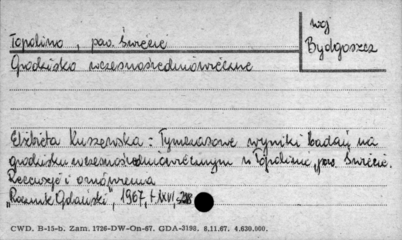 Topolino, pow. Świecie
woj
Bydgoszcz
Grodzisko wczesnośredniowieczne
Elżbieta Kuszewska: Tymczasowe wyniki badań na
grodzisku wczesnośredniowiecznym w Topolinie, pow. Świecie.
Recenzje i omówienia
"Rocznik Gdański", 1967, t. XXVI, s.
CWD. B-15-b. Zam. 1726-DW-On-67. GDA-3193. 8.11.67. 4.630.000.